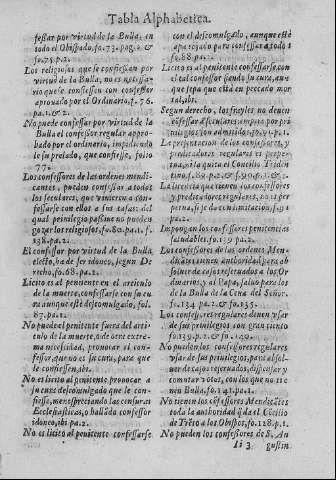 Tabla Alphabetica.
fessar por virtud de la Bulla, en
todo el Obispado, fo. 73. pag. 2. &
fo. 75. p. 2.
Los religiosos que se confiessan por
virtud de la Bulla, no es necessa-
rio que se confiessen con confessor
aprouado por el Ordinario, f. 76.
pa. 1. & 2.
No puede confessar por virtud de la
Bulla el confessor regular appro-
bado por el ordinario, impidiendo
se su prelado, que confiesse, folio
77.
Los confessores de las ordenes mendi-
cantes, pueden confessar a todos
los seculares, que vinieren a con-
fessarse con ellos a sus casas: del
qual priuilegio pueden
gozar los religiosos, fo. 80. pa. 1. f.
138. p. 2.
El confessor por virtud de la Bulla
electo, ha de ser idoneo, segun De
recho, fo. 68. pa. 2.
Licito es al penitente en el articulo
de la muerte, confessarse con su cu
ra aunque esté descomulgado, fol.
87. pa. 1.
No puede el penitente fuera del arti-
culo de la muerte, o de otra extre-
ma necessidad, prouocar al con-
fessor, que no es su cura, para que
le confiesse, ibi.
No es licito al penitente prouocar a
su cura descomulgado que le con-
fiesse, menospreciando las censuras
Ecclesiasticas, o hallado confessor
idoneo, ibi pa. 2.
No es licito al penitente confessarse
con el descomulgado, aunque esté
aparejado para confessar a todos
fo. 88. pa. 2.
Licito es al penitente confessarse con
el tal confessor siendo su cura, aun-
que sepa que está en peccado mor
tal, ibi.
Segun derecho, los frayles no deuen
cõfessar a seculares
admitidos, fo. 94. p. 1.
La presentacion de los confessores, y
predicadores regulares es perpe-
tua, segun el Concilio Triden
tino, f. 89. p. 2. f. 90. p. 1.
La licencia que tienen los confessores,
y predicadores regulares, no es per
petua,
p. 2.
Impongan los confessores penitencias
saludables, fo. 119. pa. 2.
Los confessores de las ordenes Men-
dicantes tienen authoridad para ab
soluer de casos reseruados a los Or-
dinarios, y al Papa, saluo para los
de la Bulla de la Cena del Señor.
fo. 134. pa. 2. & fo. 135.
Los confessores regulares deuen vsar
de sus priuilegios con gran tiento
fo. 139. p. 2. & fo. 140.
No pueden los confessores regulares
vsar de sus priuilegios, para absol-
uer de casos reseruados, dispensar y
commutar votos, con los que no tie
nen Bulla, fo. 141. pa. 1.
No tienen los cõfessores Mendicãtes
toda la authoridad q̃ da el Cõcilio
de Trẽto a los Obispos, fo. 128. p. 1.
No pueden los confessores de S. An
Ii 3 gustin